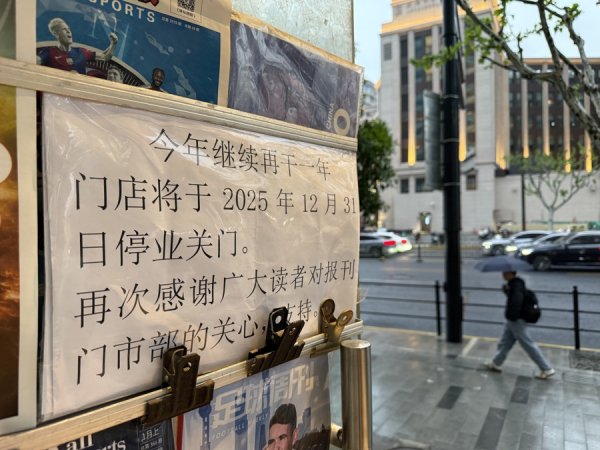 SPORTS
今年继续再干一年
门店将于 2025 年 12 月 31
日停业关门。
再次感谢广大读者对报刊
门市部的关心，支持。
足球周刊
FOOTBALL WEEKLY